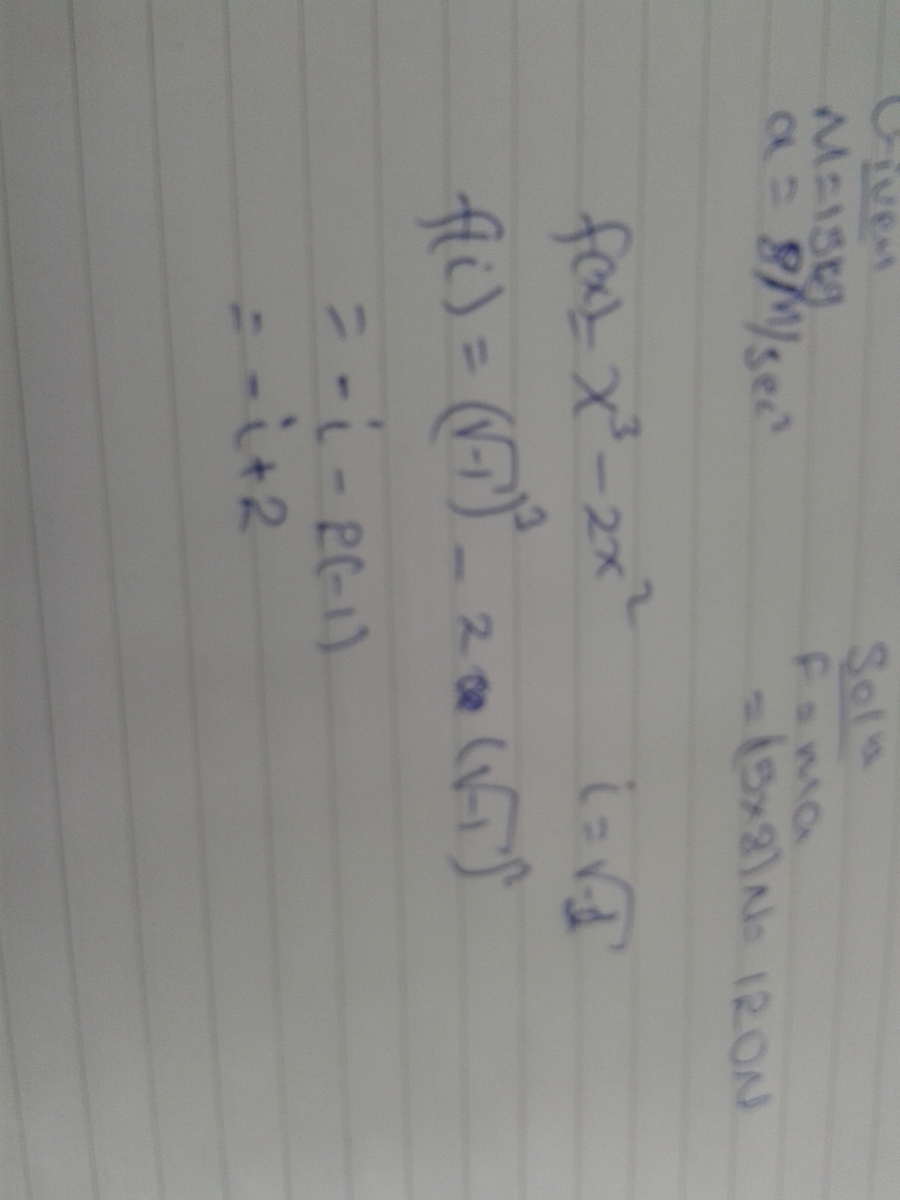 Given
M=15kg
a = 8M/sec²
Soln
F = ma
= (15x8)N= 120N
f(x)= x³-2x² i=√-1
f(i) = (√-1)³ - 2 (√-1)²
= -i - 2(-1)
= -i+2